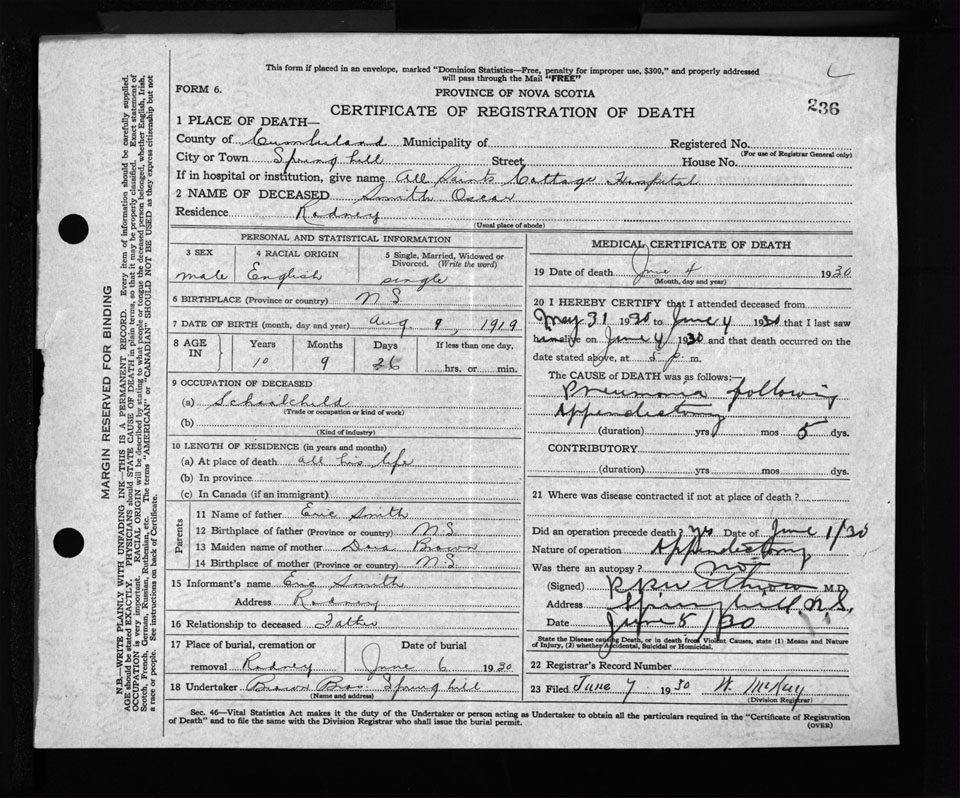 This form if placed in an envelope, marked "Dominion Statistics—Free, penalty for improper use, $300," and properly addressed
will pass through the Mail "FREE"
FORM 6.
PROVINCE OF NOVA SCOTIA
CERTIFICATE OF REGISTRATION OF DEATH
236
1 PLACE OF DEATH—
County of Cumberland Municipality of Registered No.
(For use of Registrar General only)
City or Town Spring hill Street House No.
If in hospital or institution, give name All Saints Cottage Hospital
2 NAME OF DECEASED Smith Oscar
Residence Rodney
(Usual place of abode)
PERSONAL AND STATISTICAL INFORMATION
3 SEX 4 RACIAL ORIGIN 5 Single, Married, Widowed or
Divorced. (Write the word)
male English single
6 BIRTHPLACE (Province or country) N S
7 DATE OF BIRTH (month, day and year) Aug. 9, 1919
8 AGE IN Years Months Days If less than one day,
10 9 26 hrs. or min.
9 OCCUPATION OF DECEASED
(a) Schoolchild
(Trade or occupation or kind of work)
(b)
(Kind of industry)
10 LENGTH OF RESIDENCE (in years and months)
(a) At place of death all his life
(b) In province
(c) In Canada (if an immigrant)
Parents
11 Name of father Eric Smith
12 Birthplace of father (Province or country) N.S
13 Maiden name of mother Brown
14 Birthplace of mother (Province or country) N S
15 Informant's name Eric Smith
Address Rodney
16 Relationship to deceased Father
17 Place of burial, cremation or Date of burial
removal Rodney June 6 1930
18 Undertaker Brown Bros Spring hill
(Name and address)
MEDICAL CERTIFICATE OF DEATH
19 Date of death June 4 1930
(Month, day and year)
20 I HEREBY CERTIFY that I attended deceased from
May 31 1930 to June 4 1930 that I last saw
him alive on June 4 1930 and that death occurred on the
date stated above, at 5 p. m.
The CAUSE OF DEATH was as follows:—
Pneumonia following
Appendectomy
(duration) yrs mos 5 dys.
CONTRIBUTORY
(duration) yrs mos dys.
21 Where was disease contracted if not at place of death?
Did an operation precede death? yes Date of June 1/30
Nature of operation Appendectomy
Was there an autopsy? not
(Signed) M.D.
Address Springhill, N.S.
Date June 5/30
State the Disease causing Death, or in death from Violent Causes, state (1) Means and Nature
of Injury, (2) whether Accidental, Suicidal or Homicidal.
22 Registrar's Record Number
23 Filed June 7 1930 W. McKay
(Division Registrar)
Sec. 46—Vital Statistics Act makes it the duty of the Undertaker or person acting as Undertaker to obtain all the particulars required in the "Certificate of Registration
of Death" and to file the same with the Division Registrar who shall issue the burial permit.
(OVER)
MARGIN RESERVED FOR BINDING
N.B.—WRITE PLAINLY WITH UNFADING INK—THIS IS A PERMANENT RECORD. Every item of information should be carefully supplied.
AGE should be stated EXACTLY. PHYSICIANS should STATE CAUSE OF DEATH in plain terms, so that it may be properly classified. Exact statement of
OCCUPATION is very important. RACIAL ORIGIN will be described by stating to what people or tongue the deceased person belonged, whether English, Irish,
Scotch, French, German, Russian, Ruthenian, etc. The terms "AMERICAN" or "CANADIAN" SHOULD NOT BE USED as they express citizenship but not
a race or people. See instructions on back of Certificate.